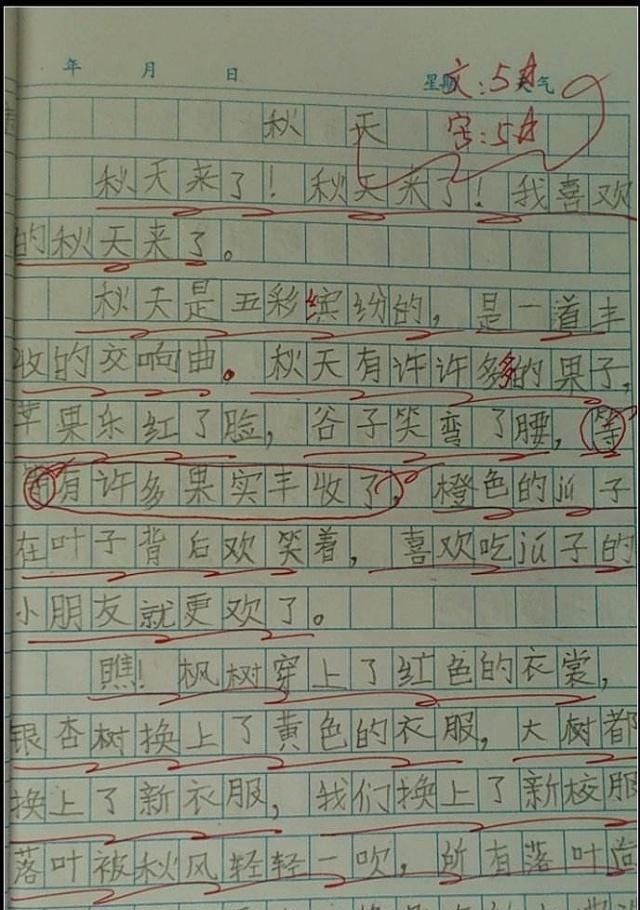 年 月 日 星期 文:5☆ 气
秋天 字:5☆
秋天来了！秋天来了！我喜欢
的秋天来了。
秋天是五彩缤纷的，是一道丰
收的交响曲。秋天有许许多多的果子，
苹果乐红了脸，谷子笑弯了腰，等
等有许多果实丰收了，橙色的jú子
在叶子背后欢笑着，喜欢吃jú子的
小朋友就更欢了。
瞧！枫树穿上了红色的衣裳，
银杏树换上了黄色的衣服，大树都
换上了新衣服，我们换上了新校服
落叶被秋风轻轻一吹，所有落叶